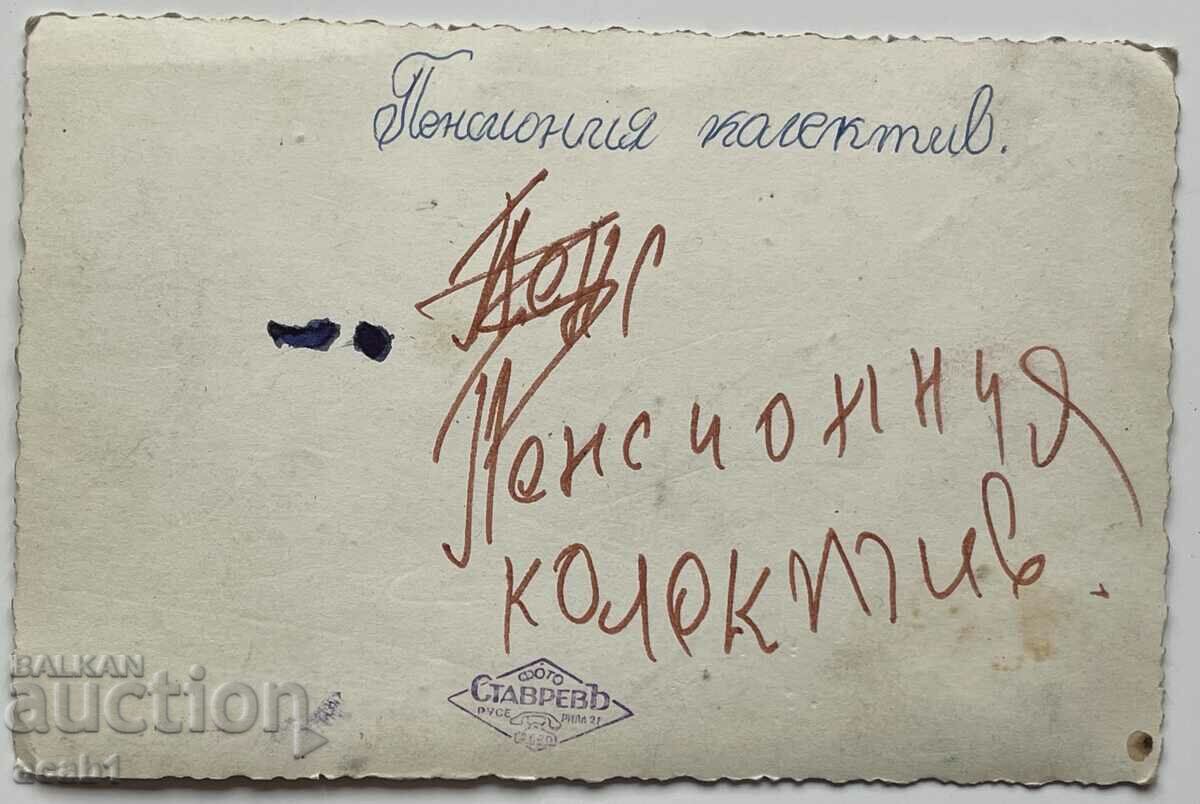 Пенсионния колектив.
Пенсионния
колектив.
ФОТО
СТАВРЕВЪ
РУСЕ РИЛА 21
BALKAN
auction
acab1